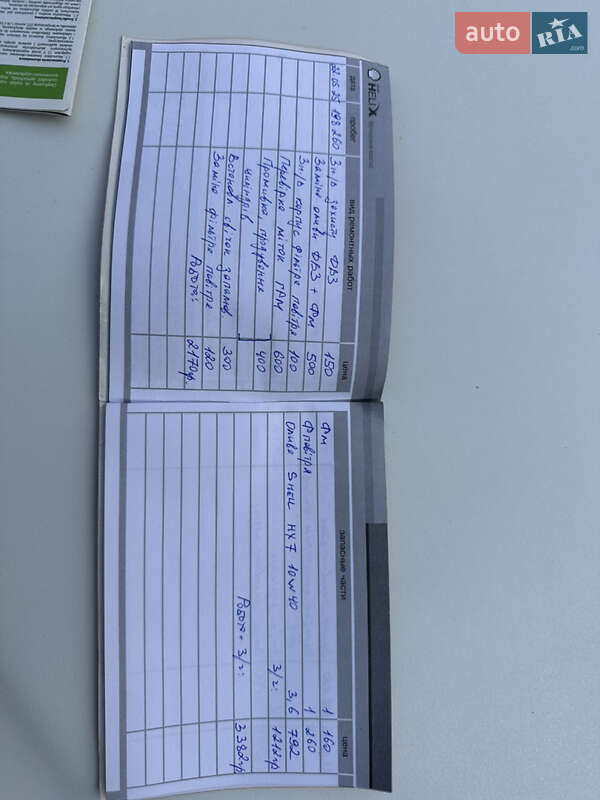 auto RIA .com
HELIX
дата пробег вид ремонтных работ цена
22.05.25 198 260 Зн/в захисту ДВЗ 150
Заміна оливи ДВЗ + ФМ 500
Зн/в корпус фільтра повітря 100
Перевірка міток ГРМ 600
Промивка, продування
циліндрів 400
Встановл свічок запалюв 300
Заміна фільтра повітря 120
Робота: 2170гр
запасные части цена
ФМ 1 160
Ф повітря 1 260
Олива SHELL HX7 10w40 3,6 792
З/ч: 1212гр
Робота + З/ч: 3382гр